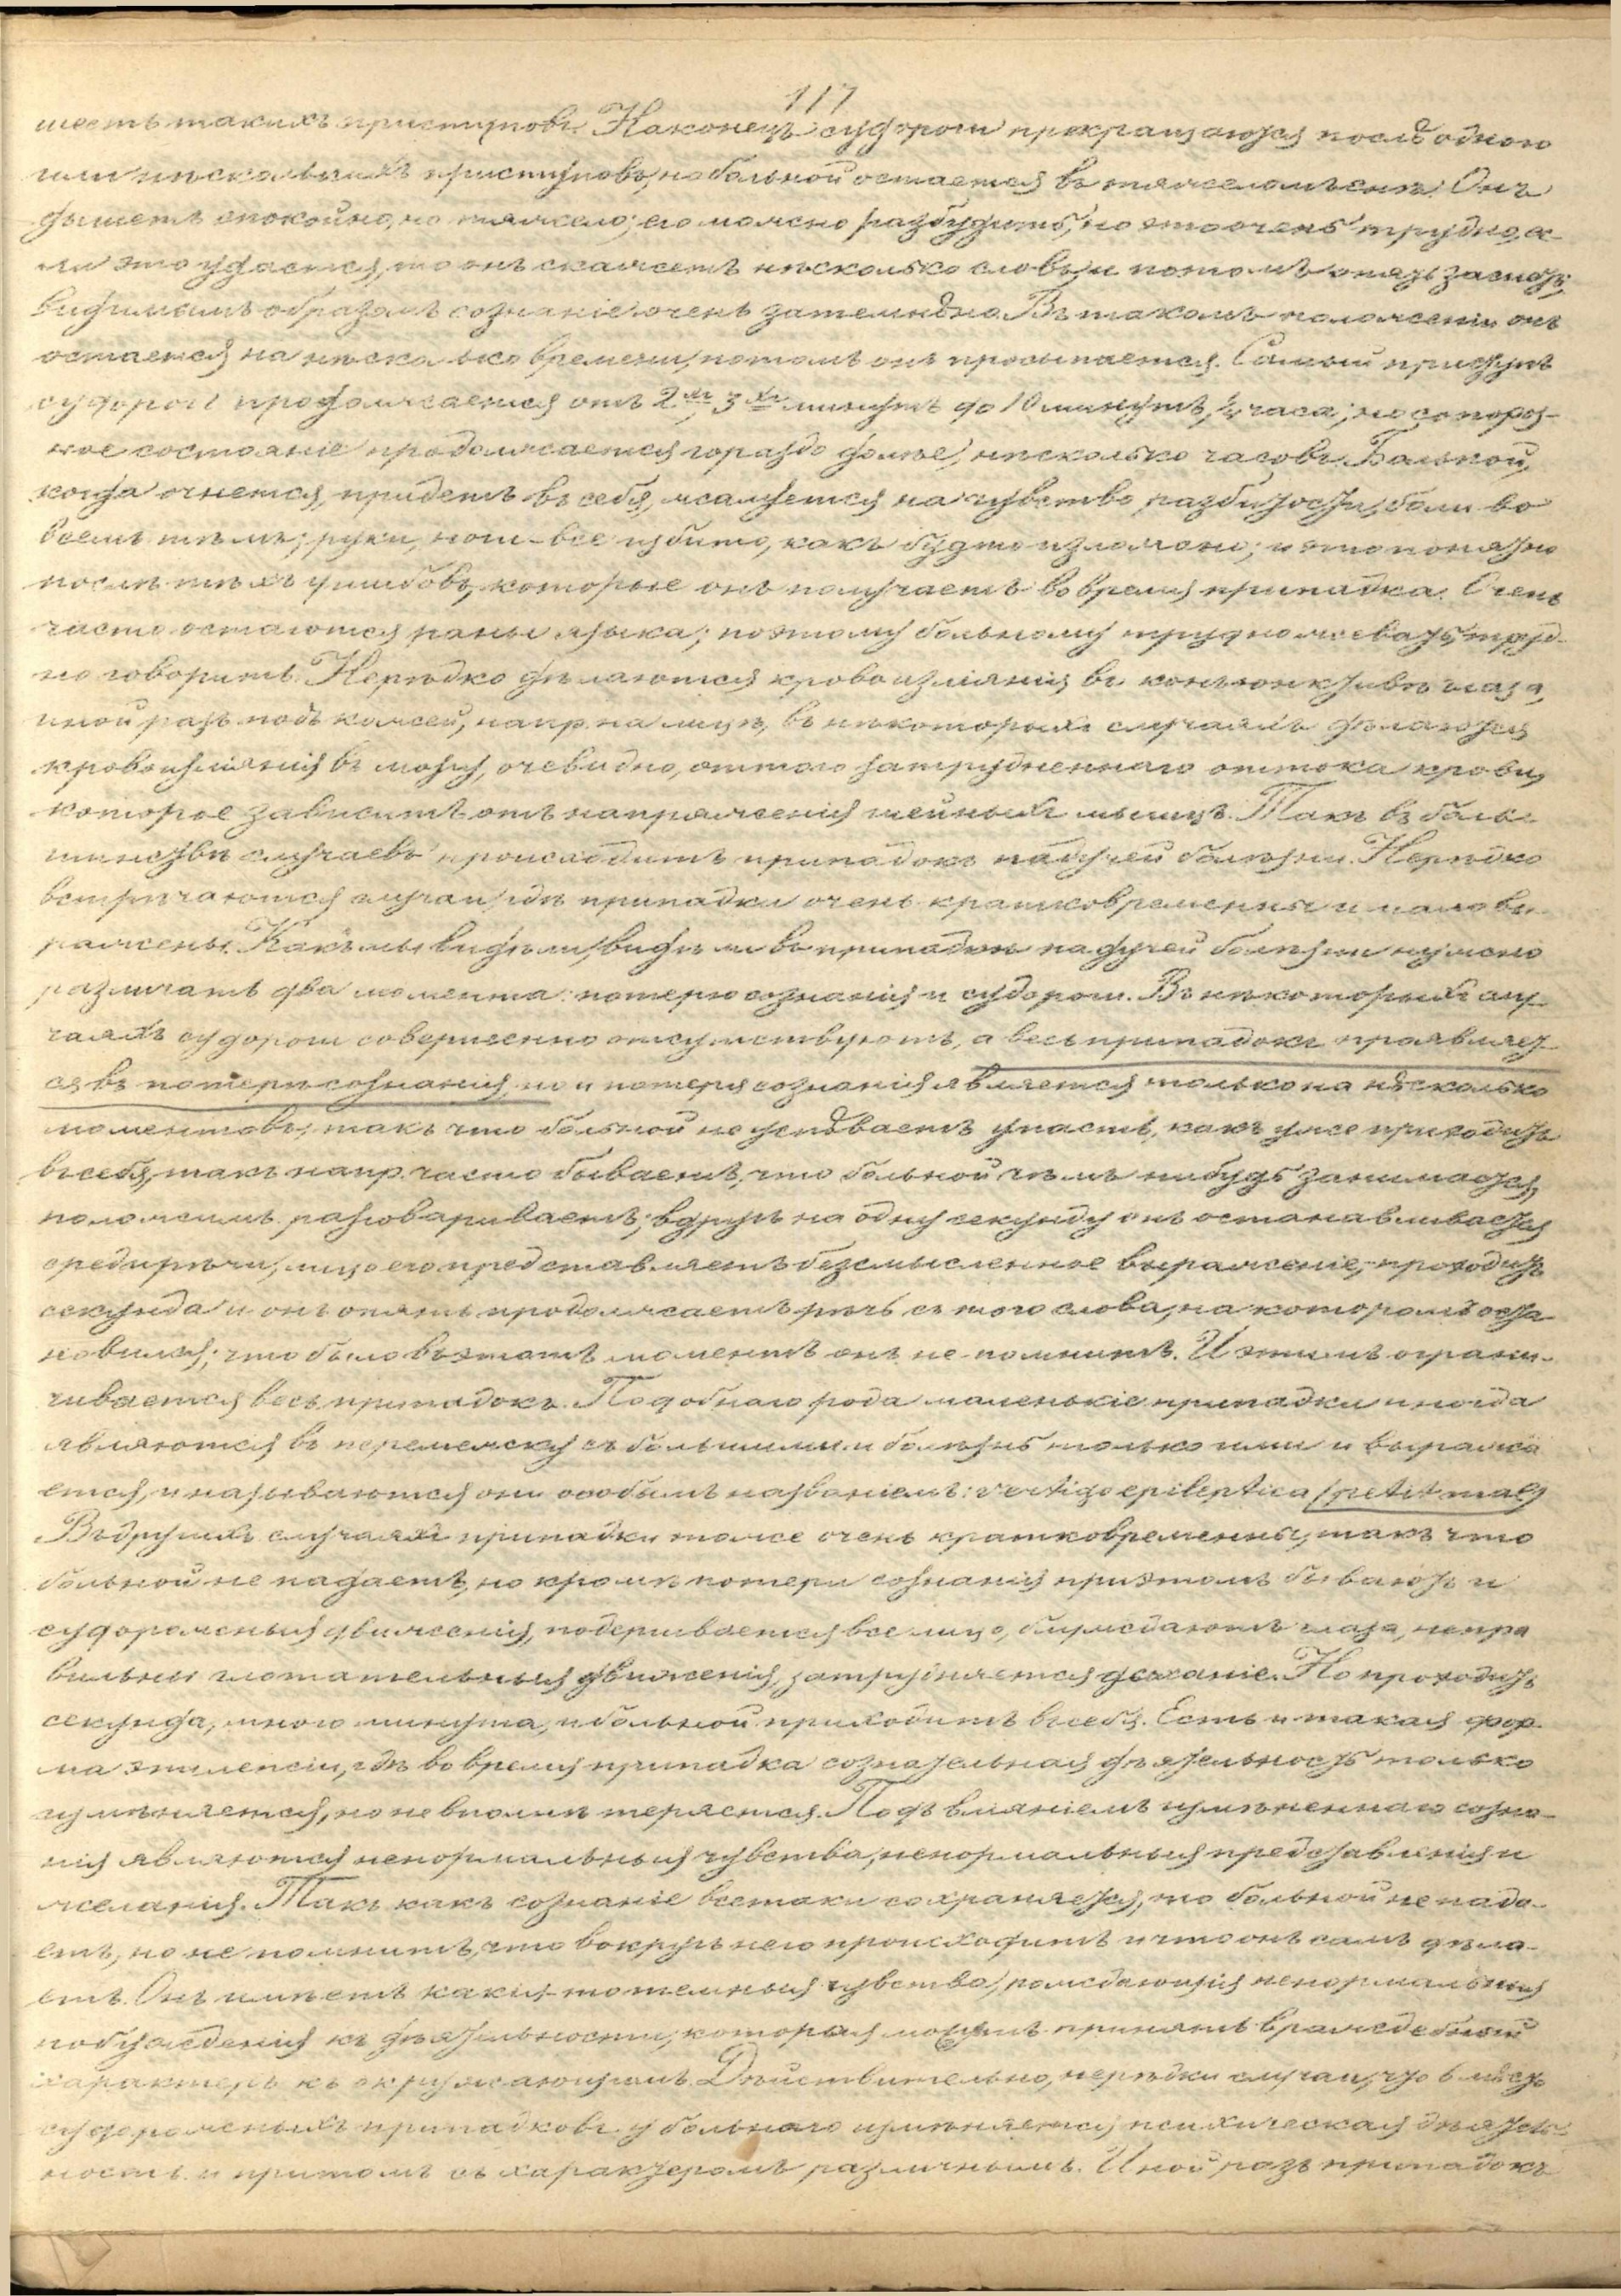 117
шесть такихъ приступовъ. Наконецъ судороги прекращаются послѣ одного
или нѣсколькихъ приступовъ, но больной остается въ тяжеломъ снѣ. Онъ
дышетъ спокойно, но тяжело; его можно разбудить, но это очень трудно, е-
ли это удастся, то онъ скажетъ нѣсколько словъ и потомъ опять заснетъ,
видимымъ образомъ сознаніе очень затемнѣно. Въ такомъ положеніи онъ
остается на нѣсколько времени, потомъ онъ просыпается. Самый приступъ
судорогъ продолжается отъ 2хъ, 3хъ минутъ до 10 минутъ, ¼ часа; но сопороз-
ное состояніе продолжается гораздо долѣе, нѣсколько часовъ. Больной,
когда очнется, придетъ въ себя, жалуется на чувство разбитости, боли во
всемъ тѣлѣ; руки, ноги - все избито, какъ будто изломано; и это понятно
послѣ тѣхъ ушибовъ, которые онъ получаетъ во время припадка. Очень
часто остаются раны языка; поэтому больному трудно жевать, труд-
но говорить. Нерѣдко дѣлаются кровоизліянія въ конъюнктивѣ глаза,
иной разъ подъ кожей, напр. на лицѣ, въ нѣкоторыхъ случаяхъ дѣлаются
кровоизліянія въ мозгу, очевидно, оттого затрудненнаго оттока крови,
которое зависитъ отъ напряженія шейныхъ мышцъ. Такъ въ боль-
шинствѣ случаевъ происходитъ припадокъ падучей болѣзни. Нерѣдко
встрѣчаются случаи, гдѣ припадки очень кратковременны и мало вы-
ражены. Какъ мы видѣли, видѣли въ припадкѣ падучей болѣзни нужно
различать два момента: потерю сознанія и судороги. Въ нѣкоторыхъ слу-
чаяхъ судороги совершенно отсутствуютъ, а весь припадокъ проявляет-
ся въ потери сознанія, но и потеря сознанія является только на нѣсколько
моментовъ, такъ что больной не успѣваетъ упасть, какъ уже приходитъ
въ себя, такъ напр. часто бываетъ, что больной чѣмъ нибудь занимается,
положимъ разговариваетъ; вдругъ на одну секунду онъ останавливается
среди рѣчи, лицо его представляетъ безсмысленное выраженіе, проходитъ
секунда и онъ опять продолжаетъ рѣчь съ того слова, на которомъ оста-
новился; что было въ этотъ моментъ онъ не помнитъ. И этимъ ограни-
чивается весь припадокъ. Подобнаго рода маленькіе припадки иногда
являются въ перемежку съ большими и болѣзнь только ими и выража-
ется, и называются они особымъ названіемъ: vertigo epileptica (petit mal)
Въ другихъ случаяхъ припадки тоже очень кратковременны, такъ что
больной не падаетъ, но кромѣ потери сознанія при этомъ бываютъ и
судорожныя движенія, подергивается все лицо, блуждаютъ глаза, непра-
вильны глотательныя движенія, затрудняется дыханіе. Но проходитъ
секунда, много минута, и больной приходитъ въ себя. Есть и такая фор-
ма эпилепсіи, гдѣ во время припадка сознательная дѣятельность только
измѣняется, но не вполнѣ теряется. Подъ вліяніемъ измѣненнаго созна-
нія являются ненормальныя чувства, ненормальныя представленія и
желанія. Такъ какъ сознаніе всетаки сохраняется, то больной не пада-
етъ, но не помнитъ, что вокругъ него происходитъ и что онъ самъ дѣла-
етъ. Онъ имѣетъ какія-то темныя чувства, рождающія ненормальныя
побужденія къ дѣятельности, которыя могутъ принять враждебный
характеръ къ окружающимъ. Дѣйствительно, нерѣдки случаи, что вмѣсто
судорожныхъ припадковъ у больнаго измѣняется психическая дѣятель-
ность и притомъ съ характеромъ различнымъ. Иной разъ припадокъ